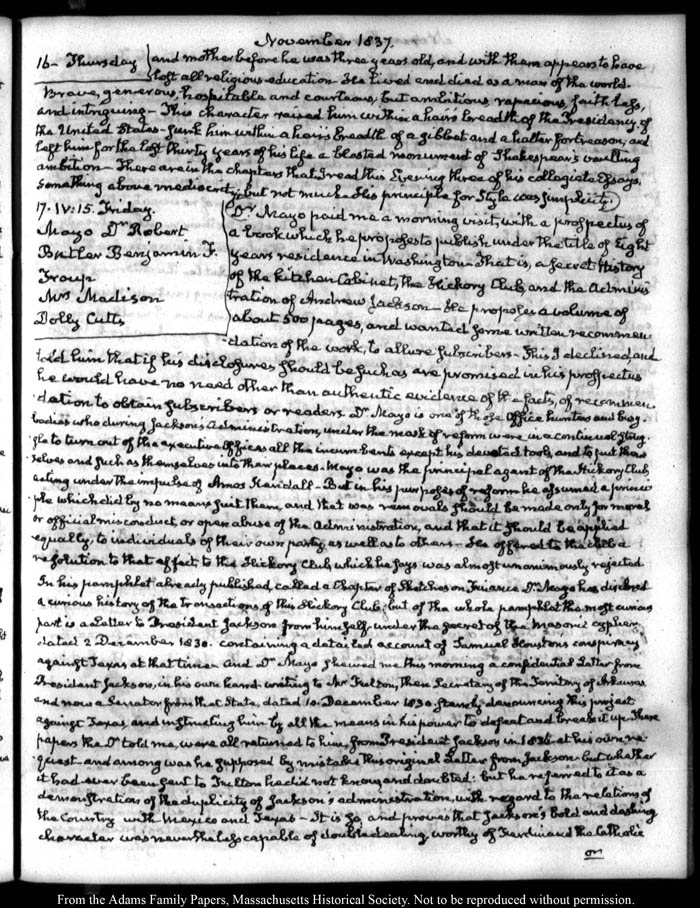 November 1837.
16 - Thursday and mother before he was three years old, and with them appears to have
lost all religious education - He lived and died as a man of the world -
Brave, generous, hospitable and courteous, but ambitious, rapacious, faithless,
and intriguing - This character raised him within a hair's breadth of the Presidency of
the United States - sunk him within a hair's breadth of a gibbet and a halter for treason, and
left him for the last thirty years of his life a blasted monument of Shakespear's vaulting
ambition - There are in the chapters that I read this Evening three of his collegiate Essays,
something above mediocrity, but not much - His principle for Style was Simplicity.
17. IV:15. Friday.
Mayo Dr Robert
Butler Benjamin F.
Troup
Mrs Madison
Dolly Cutts
Dr Mayo paid me a morning visit, with a prospectus of
a book which he proposes to publish under the title of Eight
years residence in Washington - That is, a Secret History
of the Kitchen Cabinet, the Hickory Club, and the Adminis
tration of Andrew Jackson - He proposes a volume of
about 500 pages, and wanted some written recommen
dation of the work, to allure subscribers - This I declined, and
told him that if his disclosures should be such as are promised in his prospectus
he would have no need other than authentic evidence of the facts, of recommen
dation to obtain subscribers or readers. Dr Mayo is one of those Office hunters and busy-
bodies who during Jackson's Administration, under the mask of reform were in a continual strug-
gle to turn out of the executive Offices all the incumbents except his devoted tools, and to put them
selves and such as themselves into their places - Mayo was the principal agent of the Hickory Club,
acting under the impulse of Amos Kendall - But in his purposes of reform he assumed a princi
ple which did by no means suit them, and that was removals should be made only for moral
or official misconduct, or open abuse of the Administration, and that it should be applied
equally, to individuals of their own party, as well as to others - He offered to the club a
resolution to that effect, to the Hickory Club, which he says was almost unanimously rejected.
In his pamphlet already published, called a Chapter of Sketches on Finance Dr Mayo has disclosed
a curious history of the transactions of this Hickory Club; but of the whole pamphlet the most curious
part is a Letter to President Jackson from himself under the secret of the Masonic cypher
dated 2 December 1830. containing a detailed account of Samuel Houston's conspiracy
against Texas at that time - And Dr Mayo shewed me this morning a confidential Letter from
President Jackson, in his own hand-writing to Mr Fulton, then Secretary of the Territory of Arkansas
and now a Senator from that State, dated 10. December 1830 denouncing this project
against Texas, and instructing him by all the means in his power to defeat and break it up. These
papers the Dr told me, were all returned to him, from President Jackson in 1836 at his own re-
quest - and among was he supposed by mistake this original Letter from Jackson - but whether
it had ever been sent to Fulton he did not know, and doubted: but he referred to it as a
demonstration of the duplicity of Jackson's administration, with regard to the relations of
the Country with Mexico and Texas - It is so, and proves that Jackson's bold and dashing
character was nevertheless capable of double dealing, worthy of Ferdinand the Catholic
or
From the Adams Family Papers, Massachusetts Historical Society. Not to be reproduced without permission.